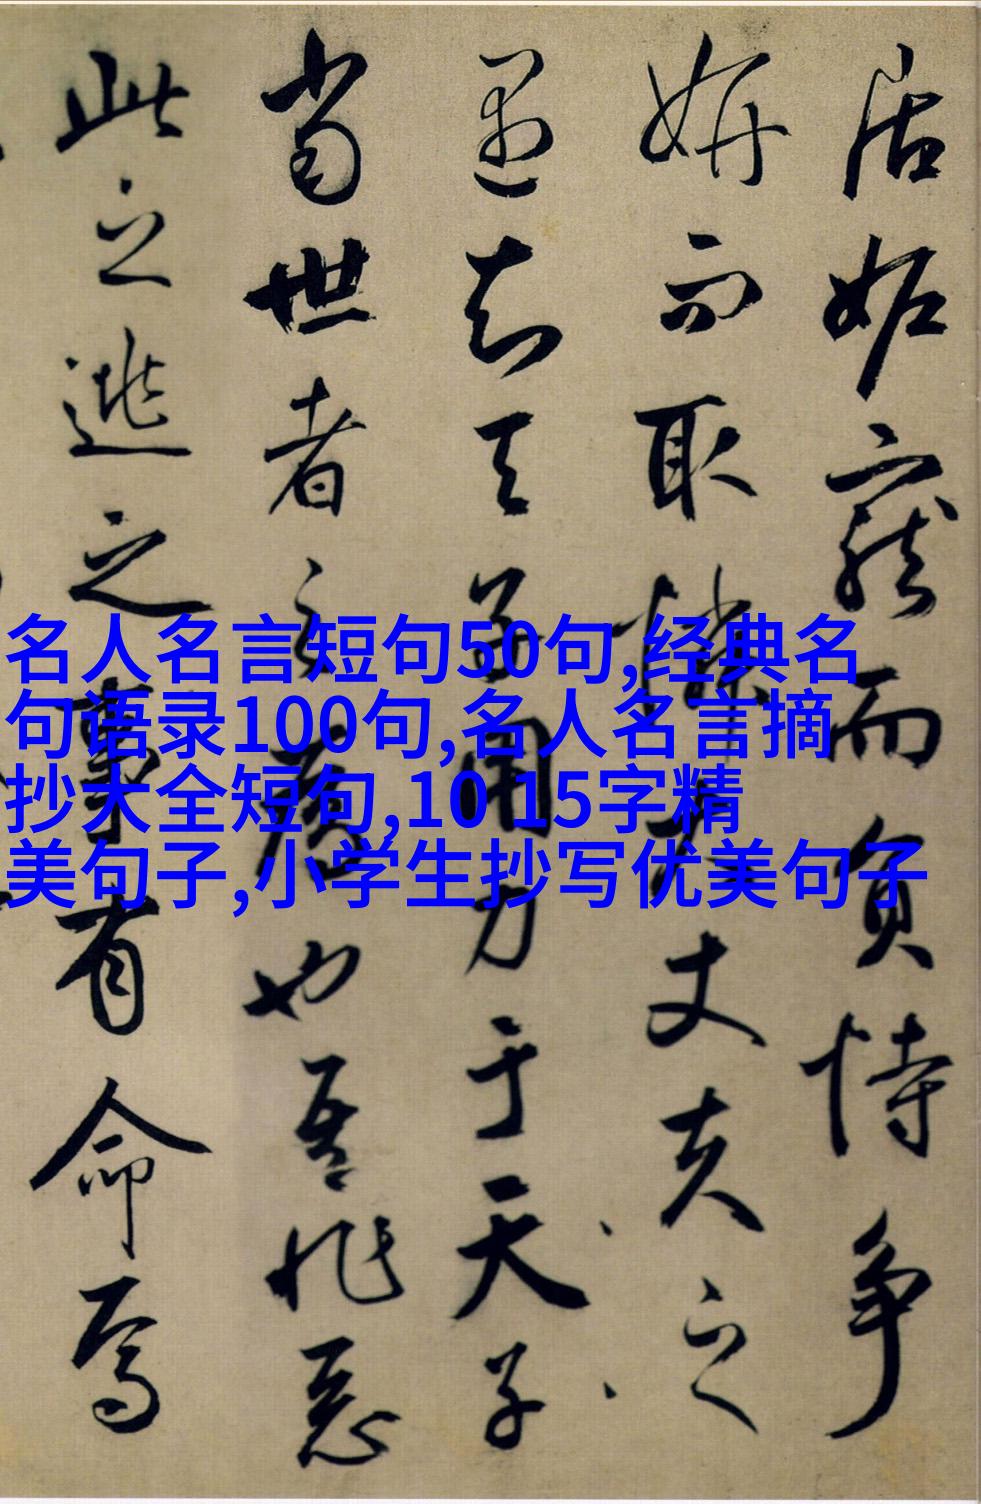 居妒寵而負恃争
妍而取憐大丈夫之
遇知天子用力于天子
當世者之為也吾非惡
此之逃之事有命焉
名人名言短句50句,经典名
句语录100句,名人名言摘
抄大全短句,10 15字精
美句子,小学生抄写优美句子